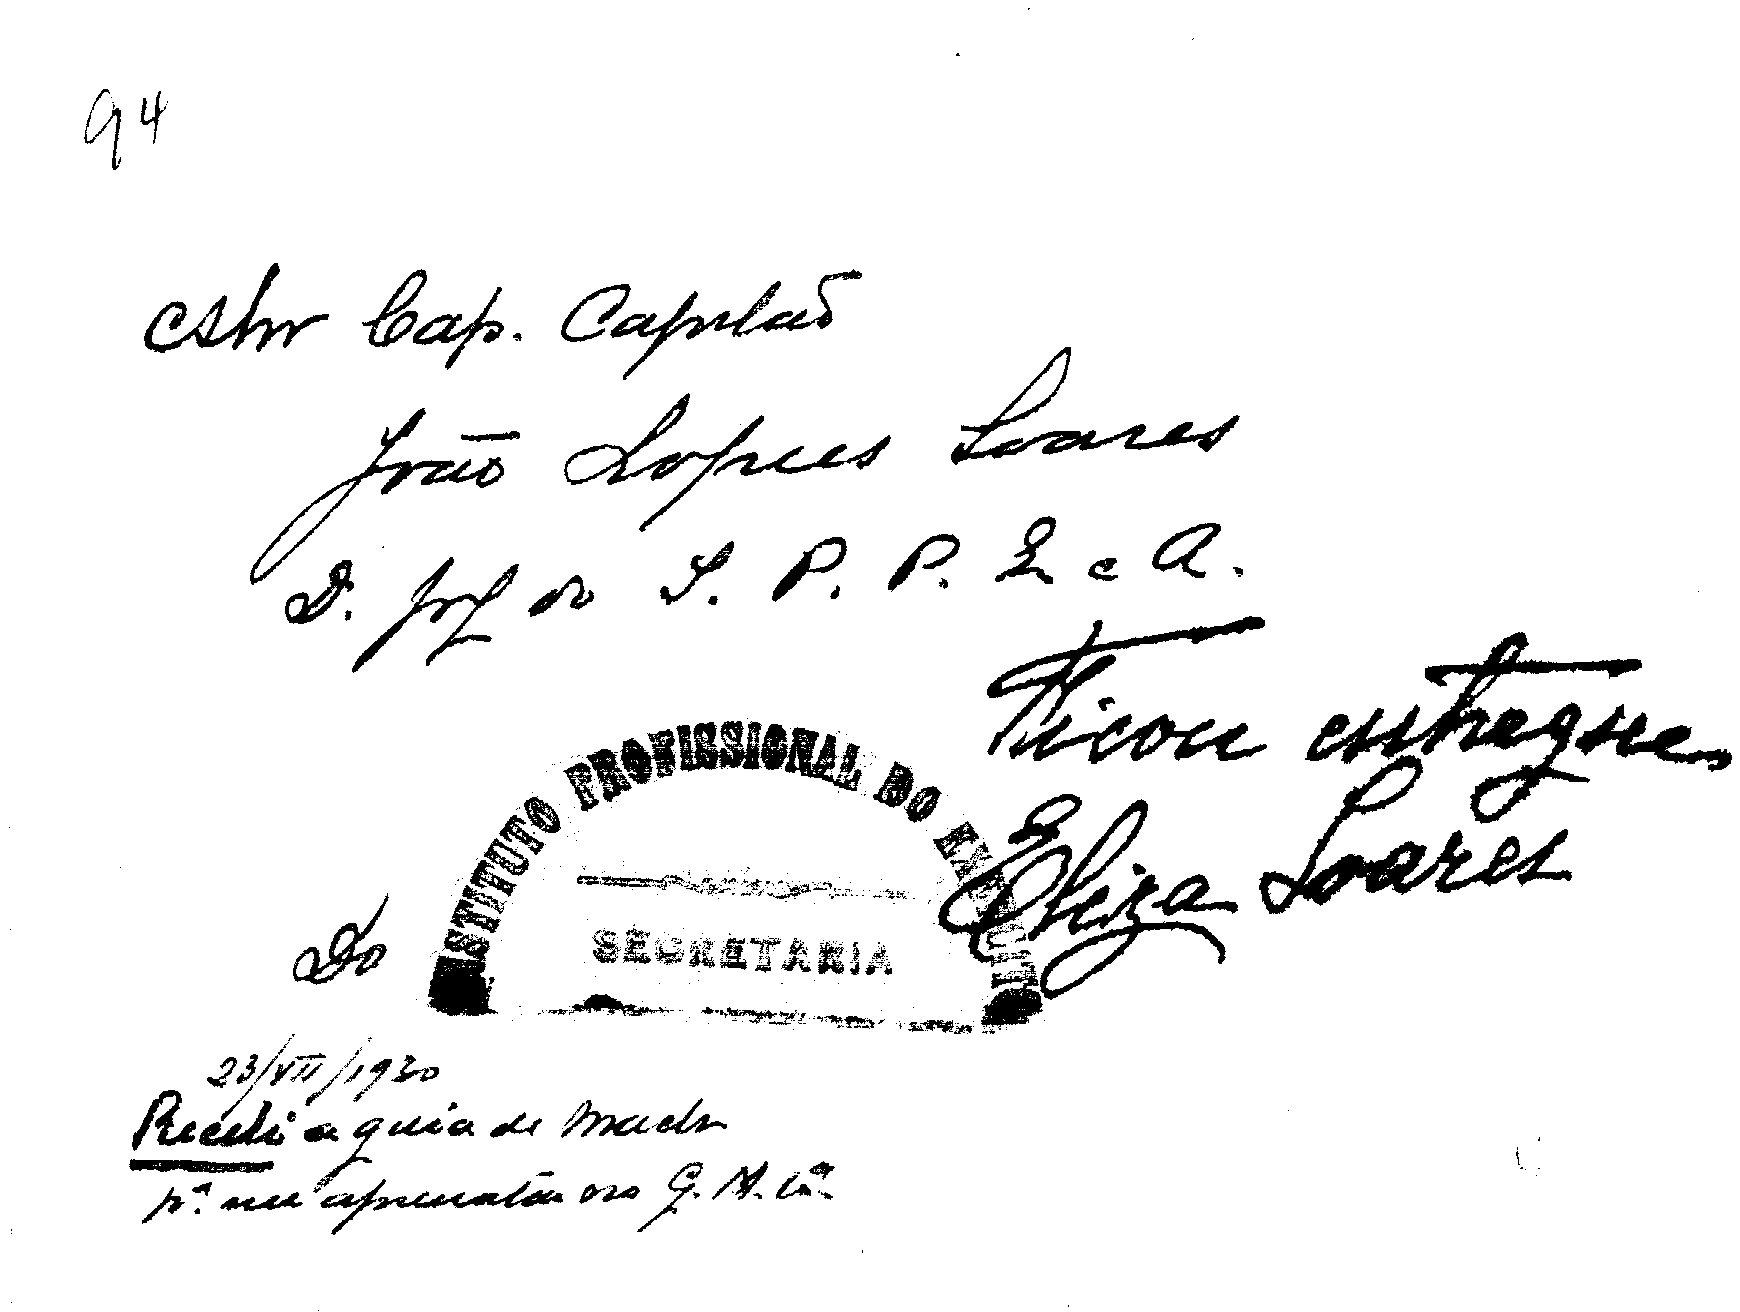 94
Cap. Capelão
João Lopes Soares
D. Prof do I. P. P. E e A.
Ficou entregue
Eliza Soares
INSTITUTO PROFISSIONAL DO EXERCITO
SECRETARIA
Do
23/VII/1930
Recebi a guia de
pª me apresentar no G. M.